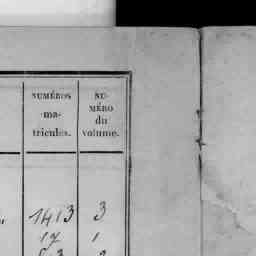 NUMÉROS
ma-
tricules.
NU-
MÉRO
du
volume.
1413 3
17 1